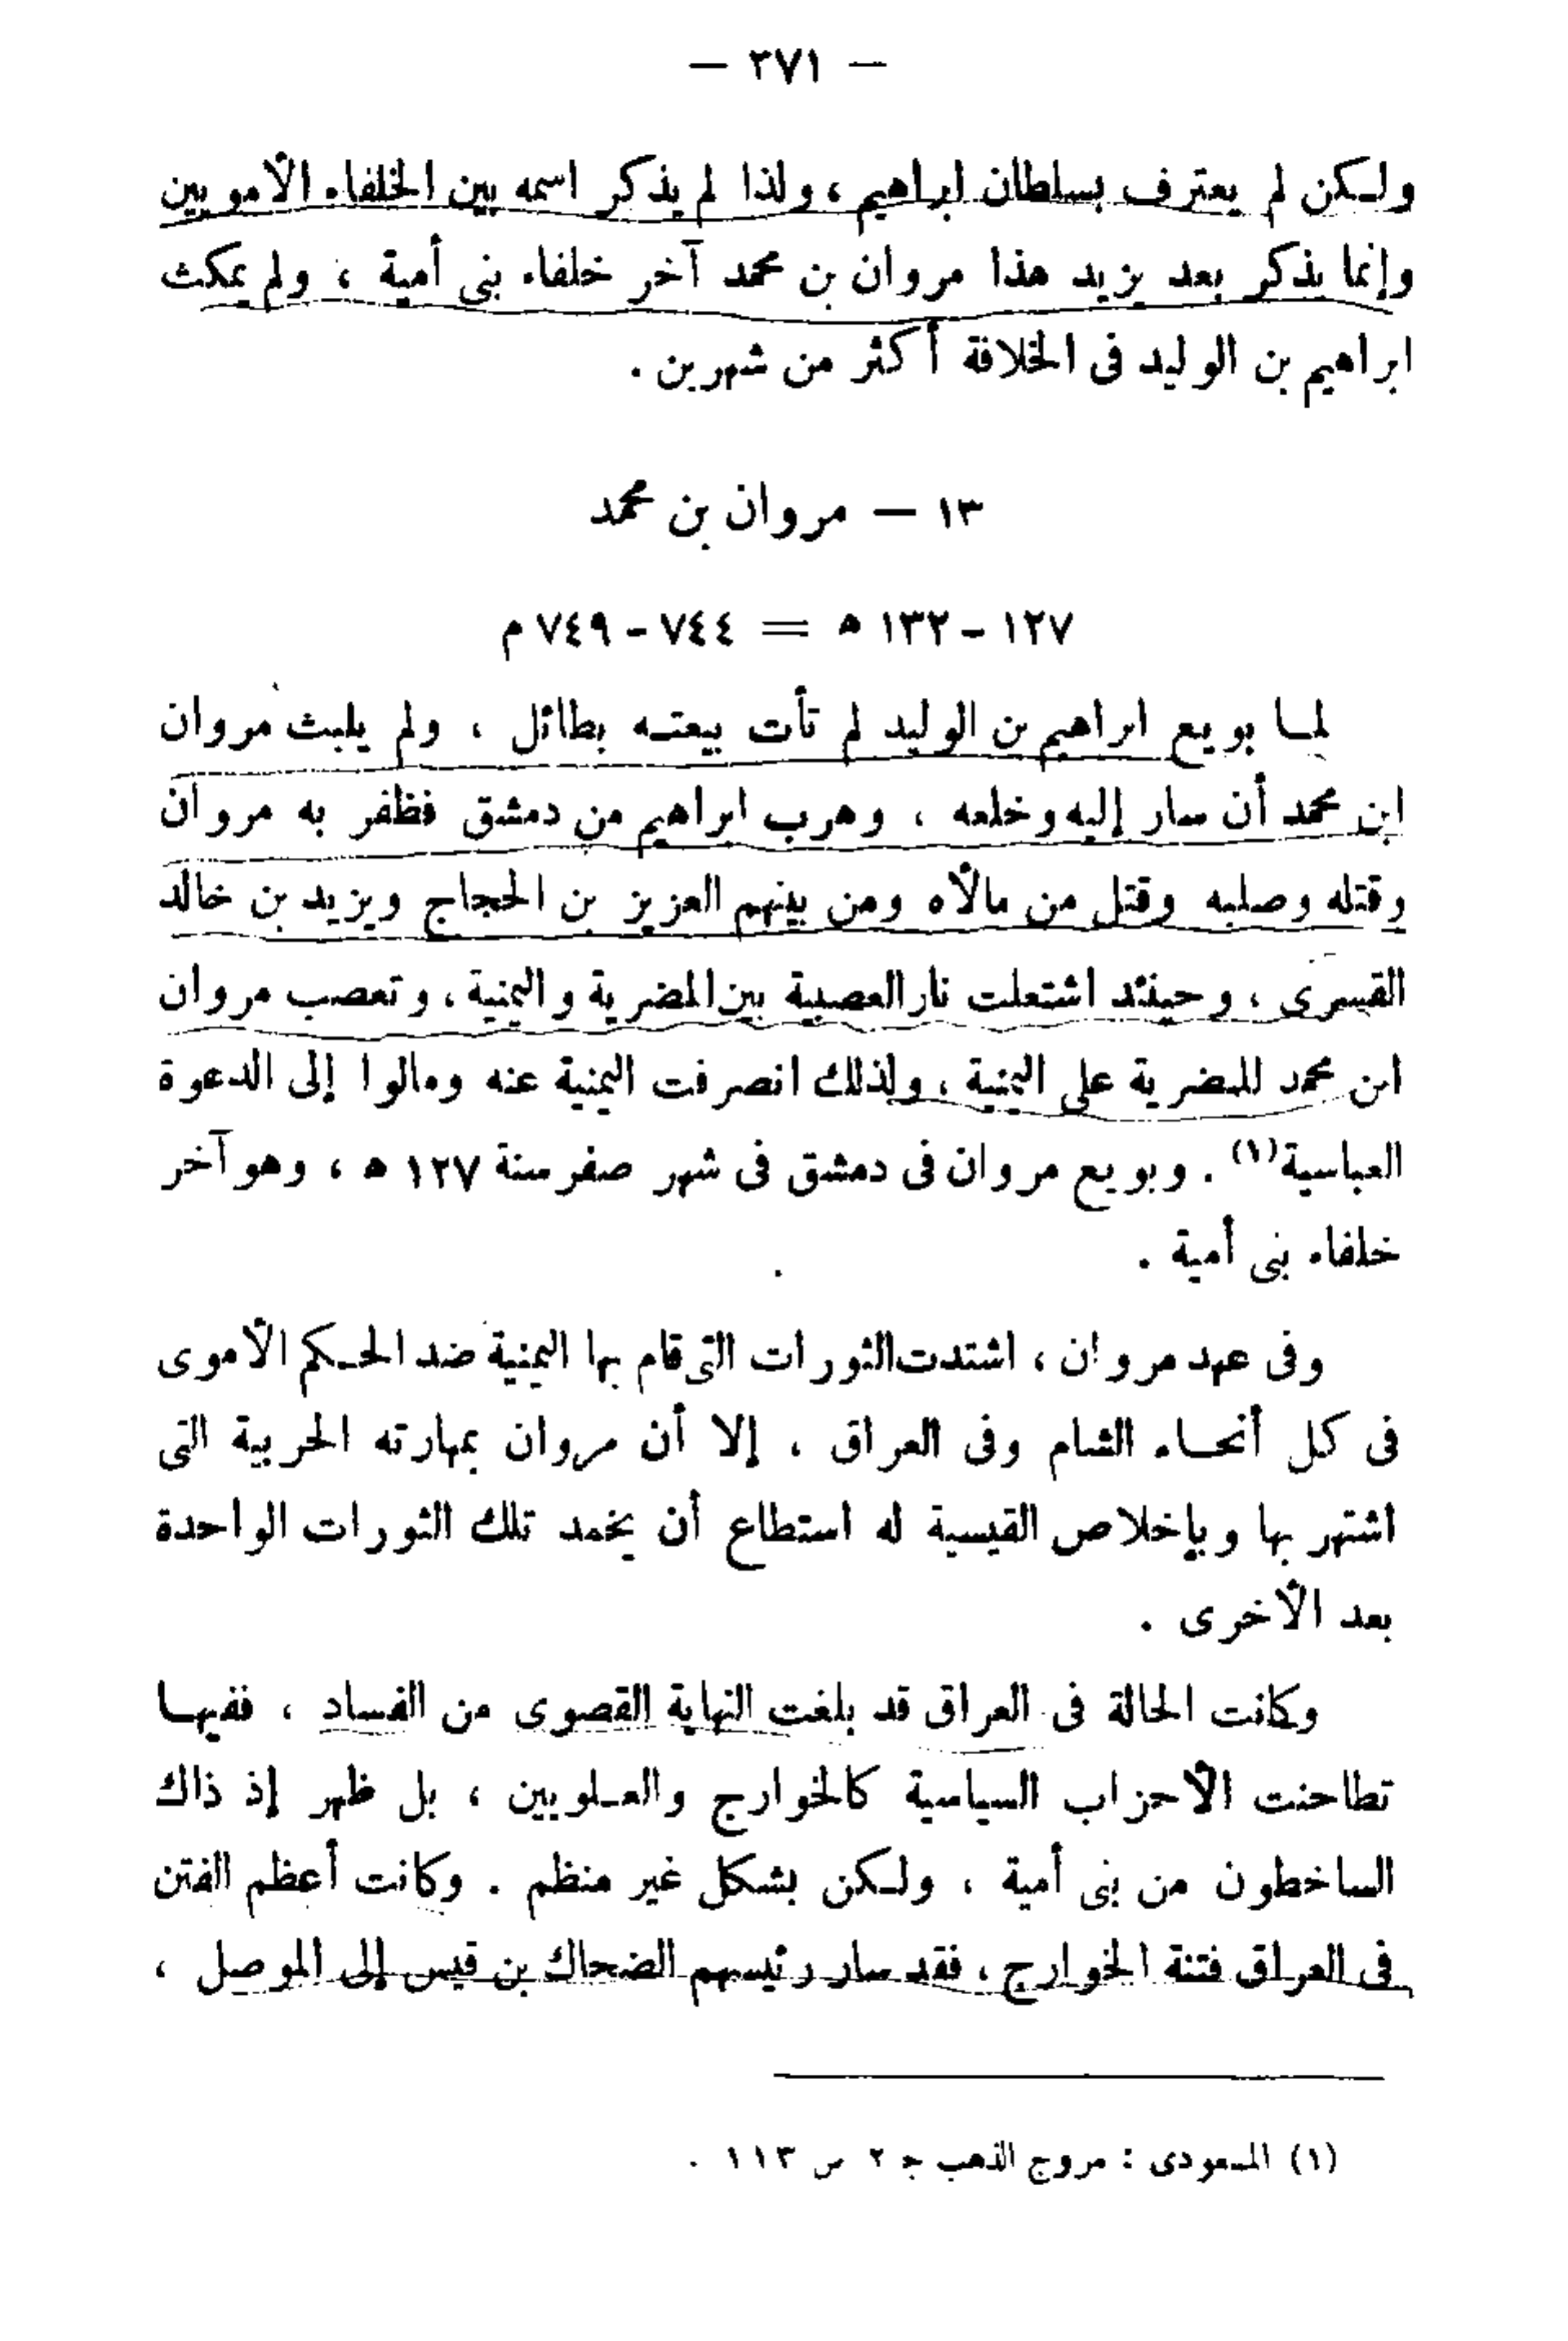 — ٢٧١ —
ولكن لم يعترف بسلطان ابراهيم ، ولذا لم يذكر اسمه بين الخلفاء الأمويين
وإنما يذكر بعد يزيد هذا مروان بن محمد آخر خلفاء بنى أمية ، ولم يمكث
ابراهيم بن الوليد فى الخلافة أكثر من شهرين .
١٣ — مروان بن محمد
١٢٧ - ١٣٢ ه = ٧٤٤ - ٧٤٩ م
لما بويع ابراهيم بن الوليد لم تأت بيعته بطائل ، ولم يلبث مروان
ابن محمد أن سار إليه وخلعه ، وهرب ابراهيم من دمشق فظفر به مروان
وقتله وصلبه وقتل من مالأه ومن بينهم العزيز بن الحجاج ويزيد بن خالد
القسرى ، وحينئد اشتعلت نار العصبية بين المضرية واليمنية ، وتعصب مروان
ابن محمد للمضرية على اليمنية ، ولذلك انصرفت اليمنية عنه ومالوا إلى الدعوة
العباسية(١) . وبويع مروان فى دمشق فى شهر صفر سنة ١٢٧ ه ، وهو آخر
خلفاء بنى أمية .
وفى عهد مروان ، اشتدت الثورات التى قام بها اليمنية ضد الحكم الأموى
فى كل أنحاء الشام وفى العراق ، إلا أن مروان بمهارته الحربية التى
اشتهر بها وبإخلاص القيسية له استطاع أن يخمد تلك الثورات الواحدة
بعد الأخرى .
وكانت الحالة فى العراق قد بلغت النهاية القصوى من الفساد ، ففيها
تطاحنت الأحزاب السياسية كالخوارج والعلويين ، بل ظهر إذ ذاك
الساخطون من بنى أمية ، ولكن بشكل غير منظم . وكانت أعظم الفتن
فى العراق فتنة الخوارج ، فقد سار رئيسهم الضحاك بن قيس إلى الموصل ،
(١) المسعودى : مروج الذهب ج ٢ ص ١١٣ .